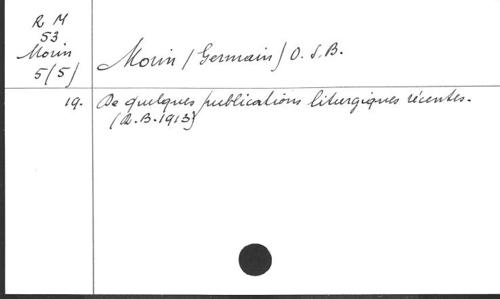 R M
53
Morin
5(5)
Morin (Germain) O.S.B.
19. De quelques publications liturgiques récentes.
(R.B. 1913)